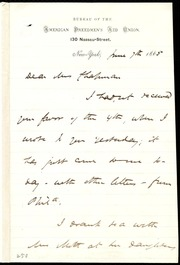 BUREAU OF THE
AMERICAN FREEDMEN'S AID UNION,
130 NASSAU-STREET,
New-York, June 7th 1865
Dear Mrs Chapman
I had not received
your favor of the 4th, when I
wrote to you yesterday; it
has just come to me to-
day - with other letters - from
Phila
I drank tea with
Mrs Mott at her daughters